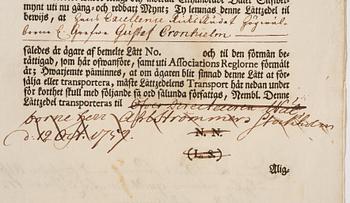 mynt uti nu gång, och redbart Mynt; Ty lemnas denne Lättzedel til
bewijs, at Hans Excellence Riksrådet Högwäl-
borne H. Grefwe Gustaf Cronhielm
således är ägare af bemelte Lätt No. och til den förmån be-
rättigad, som här ofwanföre, samt uti Associations Reglorne förmält
är; Hwarjemte påminnes, at om ägaren blir sinnad denne Lätt at för-
sälja eller transportera, måste Lättzedelens Transport här nedan under
för korthet skull med följande få ord sålunda författas, Nembl. Denne
Lättzedel transporteras til Öfwer Directeuren
borne Herr Ahlströmmers Stockholm
d. 12 Oct. 1757.
N. N.
(L. S.)
Alig.